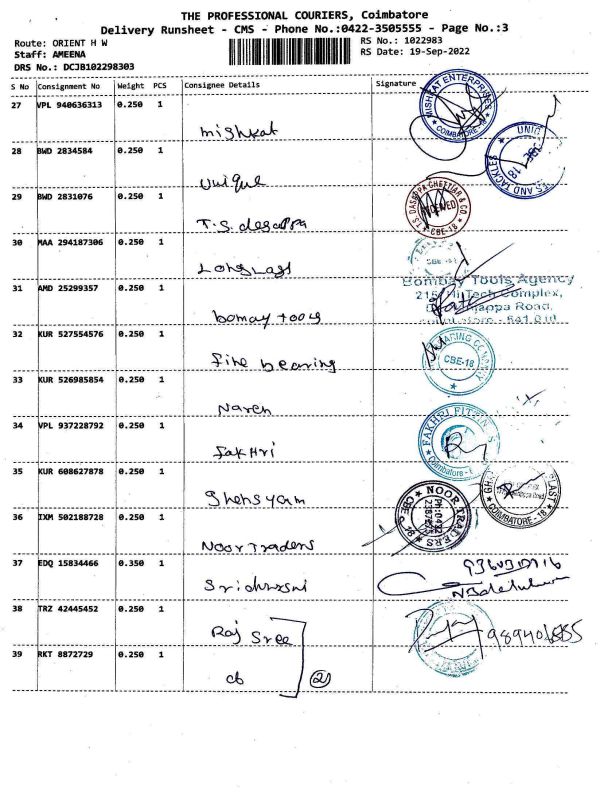 THE PROFESSIONAL COURIERS, Coimbatore
Delivery Runsheet - CMS - Phone No.:0422-3505555 - Page No.:3
Route: ORIENT H W
RS No.: 1022983
Staff: AMEENA
RS Date: 19-Sep-2022
DRS No.: DCJB102298303
S No Consignment No Weight PCS Consignee Details Signature
27 VPL 940636313 0.250 1
Mishkat
MISHKAT ENTERPRISES COIMBATORE-18
28 BWD 2834584 0.250 1
Unique
29 BWD 2831076 0.250 1
T.S. desappa
T.S. DASAPPA CHETTIAR & CO. CBE-18
30 MAA 294187306 0.250 1
31 AMD 25299357 0.250 1
bomay tools
Bombay Tools Agency
Hi Tech Complex,
32 KUR 527554576 0.250 1
fine bearing
CBE-18
33 KUR 526985854 0.250 1
Naren
34 VPL 937228792 0.250 1
fakHri
FAKHRI
35 KUR 608627878 0.250 1
Ghensyam
COIMBATORE-18
36 IXM 502188728 0.250 1
Noor Traders
NOOR TRADERS
37 EDQ 15834466 0.350 1
38 TRZ 42445452 0.250 1
Raj Sree
39 RKT 8872729 0.250 1
cb
2